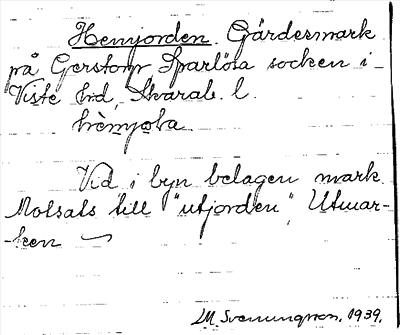 Hemjorden. Gärdesmark
på Gerstorp Sparlösa socken i
Viste hd, Skarab. l.
hèmjoḷa
Vid i byn belagen mark
Motsats till "utjorden", Utmar-
-ken
M. Svenungson. 1939.